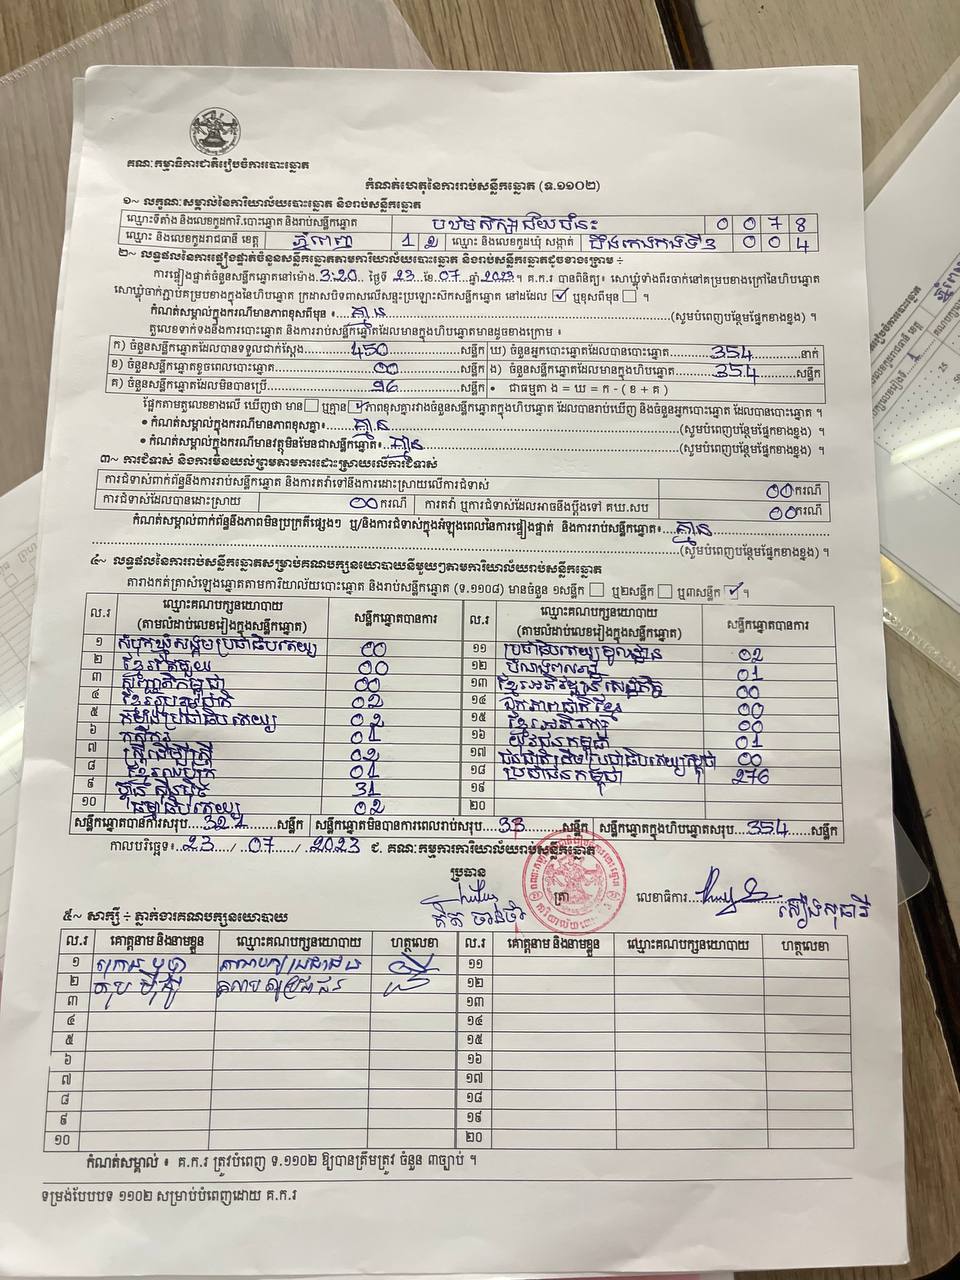 គណៈកម្មាធិការជាតិរៀបចំការបោះឆ្នោត
កំណត់ហេតុនៃការរាប់សន្លឹកឆ្នោត (ទ.១១០២)
១~ លក្ខណៈសម្គាល់នៃការិយាល័យបោះឆ្នោត និងរាប់សន្លឹកឆ្នោត
ឈ្មោះទីតាំង និងលេខកូដការិ.បោះឆ្នោត និងរាប់សន្លឹកឆ្នោត បឋមសិក្សាជ័យជំនះ 0 0 7 8
ឈ្មោះ និងលេខកូដរាជធានី ខេត្ត ភ្នំពេញ 1 2 ឈ្មោះ និងលេខកូដឃុំ សង្កាត់ បឹងកេងកងទី3 0 0 4
២~ លទ្ធផលនៃការផ្ទៀងផ្ទាត់ចំនួនសន្លឹកឆ្នោតតាមការិយាល័យបោះឆ្នោត និងរាប់សន្លឹកឆ្នោតដូចខាងក្រោម ÷
ការផ្ទៀងផ្ទាត់ចំនួនសន្លឹកឆ្នោតនៅម៉ោង 3:20 ថ្ងៃទី 23 ខែ 07 ឆ្នាំ 2023។ គ.ក.រ បានពិនិត្យ៖ សោឃ្លុំទាំងពីរចាក់នៅគម្របខាងក្រៅនៃហិបឆ្នោត
សោឃ្លុំចាក់ភ្ជាប់គម្របខាងក្នុងនៃហិបឆ្នោត ក្រដាសបិទពាសលើសន្ទះប្រឡោះសិកសន្លឹកឆ្នោត នៅដដែល ✓ ឬខុសពីមុន ។
កំណត់សម្គាល់ក្នុងករណីមានភាពខុសពីមុន ៖ គ្មាន (សូមបំពេញបន្ថែមផ្នែកខាងខ្នង) ។
តួលេខទាក់ទងនឹងការបោះឆ្នោត និងការរាប់សន្លឹកឆ្នោតដែលមានក្នុងហិបឆ្នោតមានដូចខាងក្រោម ៖
ក) ចំនួនសន្លឹកឆ្នោតដែលបានទទួលជាក់ស្តែង 450 សន្លឹក ឃ) ចំនួនអ្នកបោះឆ្នោតដែលបានបោះឆ្នោត 354 នាក់
ខ) ចំនួនសន្លឹកឆ្នោតខូចពេលបោះឆ្នោត 00 សន្លឹក ង) ចំនួនសន្លឹកឆ្នោតដែលមានក្នុងហិបឆ្នោត 354 សន្លឹក
គ) ចំនួនសន្លឹកឆ្នោតដែលមិនបានប្រើ 96 សន្លឹក • ជាធម្មតា ង = ឃ = ក - ( ខ + គ )
ផ្អែកតាមតួលេខខាងលើ ឃើញថា មាន ឬគ្មាន ✓ ភាពខុសគ្នារវាងចំនួនសន្លឹកឆ្នោតក្នុងហិបឆ្នោត ដែលបានរាប់ឃើញ និងចំនួនអ្នកបោះឆ្នោត ដែលបានបោះឆ្នោត ។
• កំណត់សម្គាល់ក្នុងករណីមានភាពខុសគ្នា៖ គ្មាន (សូមបំពេញបន្ថែមផ្នែកខាងខ្នង) ។
• កំណត់សម្គាល់ក្នុងករណីមានវត្ថុមិនមែនជាសន្លឹកឆ្នោត៖ គ្មាន (សូមបំពេញបន្ថែមផ្នែកខាងខ្នង) ។
៣~ ការជំទាស់ និងការមិនយល់ព្រមតាមការដោះស្រាយលើការជំទាស់
ការជំទាស់ពាក់ព័ន្ធនឹងការរាប់សន្លឹកឆ្នោត និងការតវ៉ាទៅនឹងការដោះស្រាយលើការជំទាស់ 00 ករណី
ការជំទាស់ដែលបានដោះស្រាយ 00 ករណី ការតវ៉ា ឬការជំទាស់ដែលអាចនឹងប្តឹងទៅ គឃ.សប 00 ករណី
កំណត់សម្គាល់ពាក់ព័ន្ធនឹងភាពមិនប្រក្រតីផ្សេងៗ ឬ/និងការជំទាស់ក្នុងអំឡុងពេលនៃការផ្ទៀងផ្ទាត់ និងការរាប់សន្លឹកឆ្នោត៖ គ្មាន
(សូមបំពេញបន្ថែមផ្នែកខាងខ្នង) ។
៤~ លទ្ធផលនៃការរាប់សន្លឹកឆ្នោតសម្រាប់គណបក្សនយោបាយនីមួយៗតាមការិយាល័យរាប់សន្លឹកឆ្នោត
តារាងកត់ត្រាសំឡេងឆ្នោតតាមការិយាល័យបោះឆ្នោត និងរាប់សន្លឹកឆ្នោត (ទ.១១០៨) មានចំនួន ១សន្លឹក ឬ២សន្លឹក ឬ៣សន្លឹក ✓ ។
ល.រ ឈ្មោះគណបក្សនយោបាយ (តាមលំដាប់លេខរៀងក្នុងសន្លឹកឆ្នោត) សន្លឹកឆ្នោតបានការ ល.រ ឈ្មោះគណបក្សនយោបាយ (តាមលំដាប់លេខរៀងក្នុងសន្លឹកឆ្នោត) សន្លឹកឆ្នោតបានការ
១ សំបុកឃ្មុំសង្គមប្រជាធិបតេយ្យ 00 ១១ ប្រជាធិបតេយ្យមូលដ្ឋាន 02
២ ខ្មែរតែមួយ 00 ១២ បំណងពលរដ្ឋ 01
៣ ស្ម័គ្រជាតិកម្ពុជា 00 ១៣ ខ្មែរអភិវឌ្ឍន៍សេដ្ឋកិច្ច 00
៤ ខ្មែររួបរួមជាតិ 02 ១៤ ឯកភាពជាតិខ្មែរ 00
៥ កម្លាំងប្រជាធិបតេយ្យ 02 ១៥ ខ្មែរអភិរក្ស 00
៦ កសិករ 01 ១៦ យុវជនកម្ពុជា 01
៧ ស្ត្រីដើម្បីស្ត្រី 02 ១៧ ជនជាតិដើមប្រជាធិបតេយ្យកម្ពុជា 00
៨ 01 ១៨ ប្រជាជនកម្ពុជា 276
៩ ហ្វ៊ុនស៊ិនប៉ិច 31 ១៩
១០ ធម្មាធិបតេយ្យ 02 ២០
សន្លឹកឆ្នោតបានការសរុប 321 សន្លឹក សន្លឹកឆ្នោតមិនបានការពេលរាប់សរុប 33 សន្លឹក សន្លឹកឆ្នោតក្នុងហិបឆ្នោតសរុប 354 សន្លឹក
កាលបរិច្ឆេទ៖ 23 / 07 / 2023 ជ. គណៈកម្មការការិយាល័យរាប់សន្លឹកឆ្នោត
ប្រធាន ត្រា លេខាធិការ
៥~ សាក្សី ÷ ភ្នាក់ងារគណបក្សនយោបាយ
ល.រ គោត្តនាម និងនាមខ្លួន ឈ្មោះគណបក្សនយោបាយ ហត្ថលេខា ល.រ គោត្តនាម និងនាមខ្លួន ឈ្មោះគណបក្សនយោបាយ ហត្ថលេខា
១ គណបក្សប្រជាជន ១១
២ គណបក្សប្រជាជន ១២
៣ ១៣
៤ ១៤
៥ ១៥
៦ ១៦
៧ ១៧
៨ ១៨
៩ ១៩
១០ ២០
កំណត់សម្គាល់ ៖ គ.ក.រ ត្រូវបំពេញ ទ.១១០២ ឱ្យបានត្រឹមត្រូវ ចំនួន ៣ច្បាប់ ។
ទម្រង់បែបបទ ១១០២ សម្រាប់បំពេញដោយ គ.ក.រ